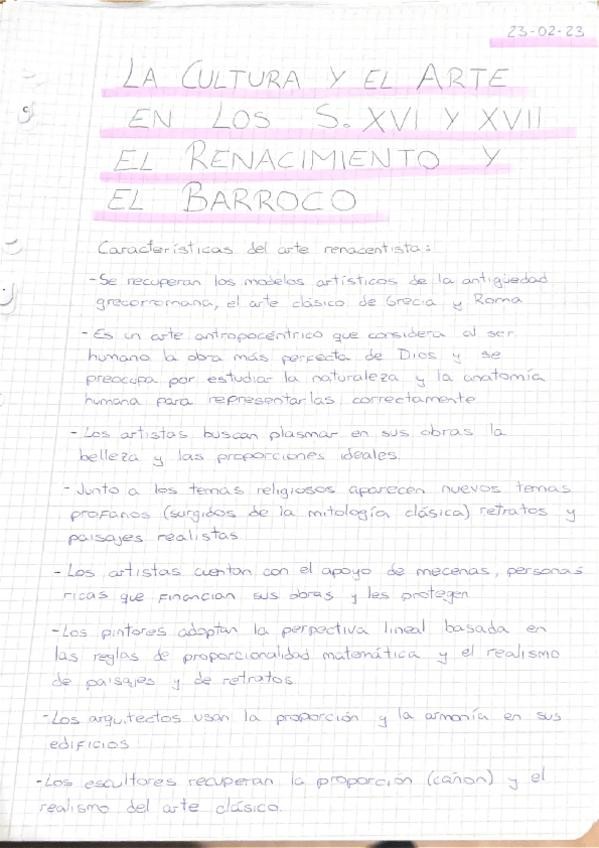 23-02-23
LA CULTURA Y EL ARTE
EN LOS S. XVI Y XVII
EL RENACIMIENTO Y
EL BARROCO
Características del arte renacentista:
- Se recuperan los modelos artísticos de la antigüedad
grecorromana, el arte clásico de Grecia y Roma
- Es un arte antropocéntrico que considera al ser
humano la obra más perfecta de Dios y se
preocupa por estudiar la naturaleza y la anatomía
humana para representarlas correctamente
- Los artistas buscan plasmar en sus obras la
belleza y las proporciones ideales
- Junto a los temas religiosos aparecen nuevos temas
profanos (surgidos de la mitología clásica) retratos y
paisajes realistas
- Los artistas cuentan con el apoyo de mecenas, personas
ricas que financian sus obras y les protegen
- Los pintores adoptan la perpectiva lineal basada en
las reglas de proporcionalidad matemática y el realismo
de paisajes y de retratos
- Los arquitectos usan la proporción y la armonía en sus
edificios
- Los escultores recuperan la proporción (cánon) y el
realismo del arte clásico.